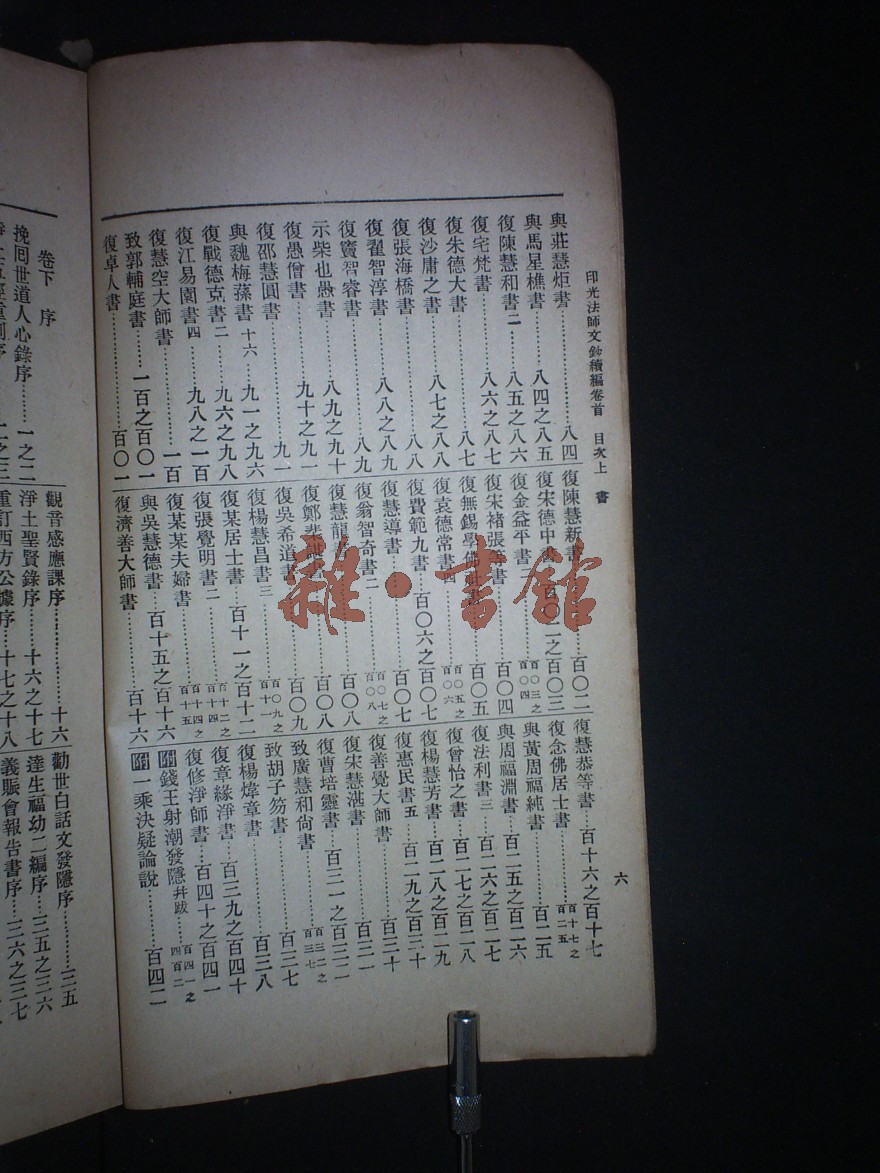 印光法師文鈔續編卷首 目次上 書
六
與莊慧炬書 八四
與馬星樵書 八四之八五
復陳慧和書二 八五之八六
復宅梵書 八六之八七
復朱德大書 八七
復沙庸之書 八七之八八
復張海橋書 八八
復翟智淳書 八八之八九
復竇智睿書 八九
示柴也愚書 八九之九十
復愚僧書 九十之九一
復邵慧圓書 九一
與魏梅蓀書十六 九一之九六
復戰德克書二 九六之九八
復江易園書四 九八之一百
復慧空大師書 一百
致郭輔庭書 一百之百〇一
復卓人書 百〇一
復陳慧新書 百〇二
復宋德中書 百〇二之百〇三
復金益平書 百〇三之百〇四
復宋褚張等書 百〇四
復無錫學佛 書 百〇五
復袁德常書四 百〇五之百〇六
復費範九書 百〇六之百〇七
復慧導書 百〇七
復翁智奇書二 百〇七之百〇八
復慧龍書 百〇八
復鄭棐諶書 百〇八
復吳希道書 百〇九
復楊慧昌書三 百〇九之百十一
復某居士書 百十一之百十二
復張覺明書二 百十二之百十四
復某某夫婦書 百十四之百十五
與吳慧德書 百十五之百十六
復濟善大師書 百十六
復慧恭等書 百十六之百十七
復念佛居士書 百十七之百二五
與黃周福純書 百二五
與周福淵書 百二五之百二六
復法利書三 百二六之百二七
復曾怡之書 百二七之百二八
復楊慧芳書 百二八之百二九
復惠民書五 百二九之百三十
復善覺大師書 百三十
復宋慧湛書 百三一
復曹培靈書 百三一之百三二
致廣慧和尚書 百三二之百三七
致胡子笏書 百三七
復楊煒章書 百三八
復章緣淨書 百三九之百四十
復修淨師書 百四十之百四一
附錢王射潮發隱并跋 百四一之百四二
附一乘決疑論說 百四二
卷下 序
挽回世道人心錄序 一之二
觀音感應課序 十六
淨土聖賢錄序 十六之十七
重訂西方公據序 十七之十八
勸世白話文發隱序 三五
達生福幼二編序 三五之三六
義賑會報告書序 三六之三七
雜·書館